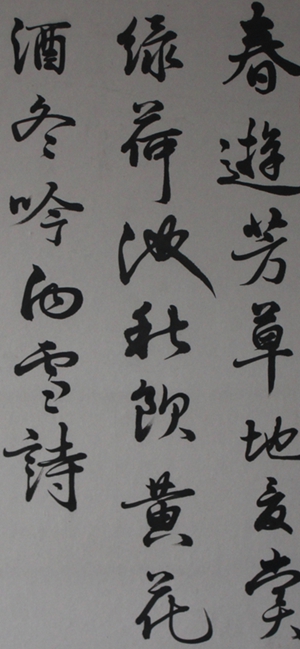 春遊芳草地夏賞
绿荷池秋飲黄花
酒冬吟白雪詩